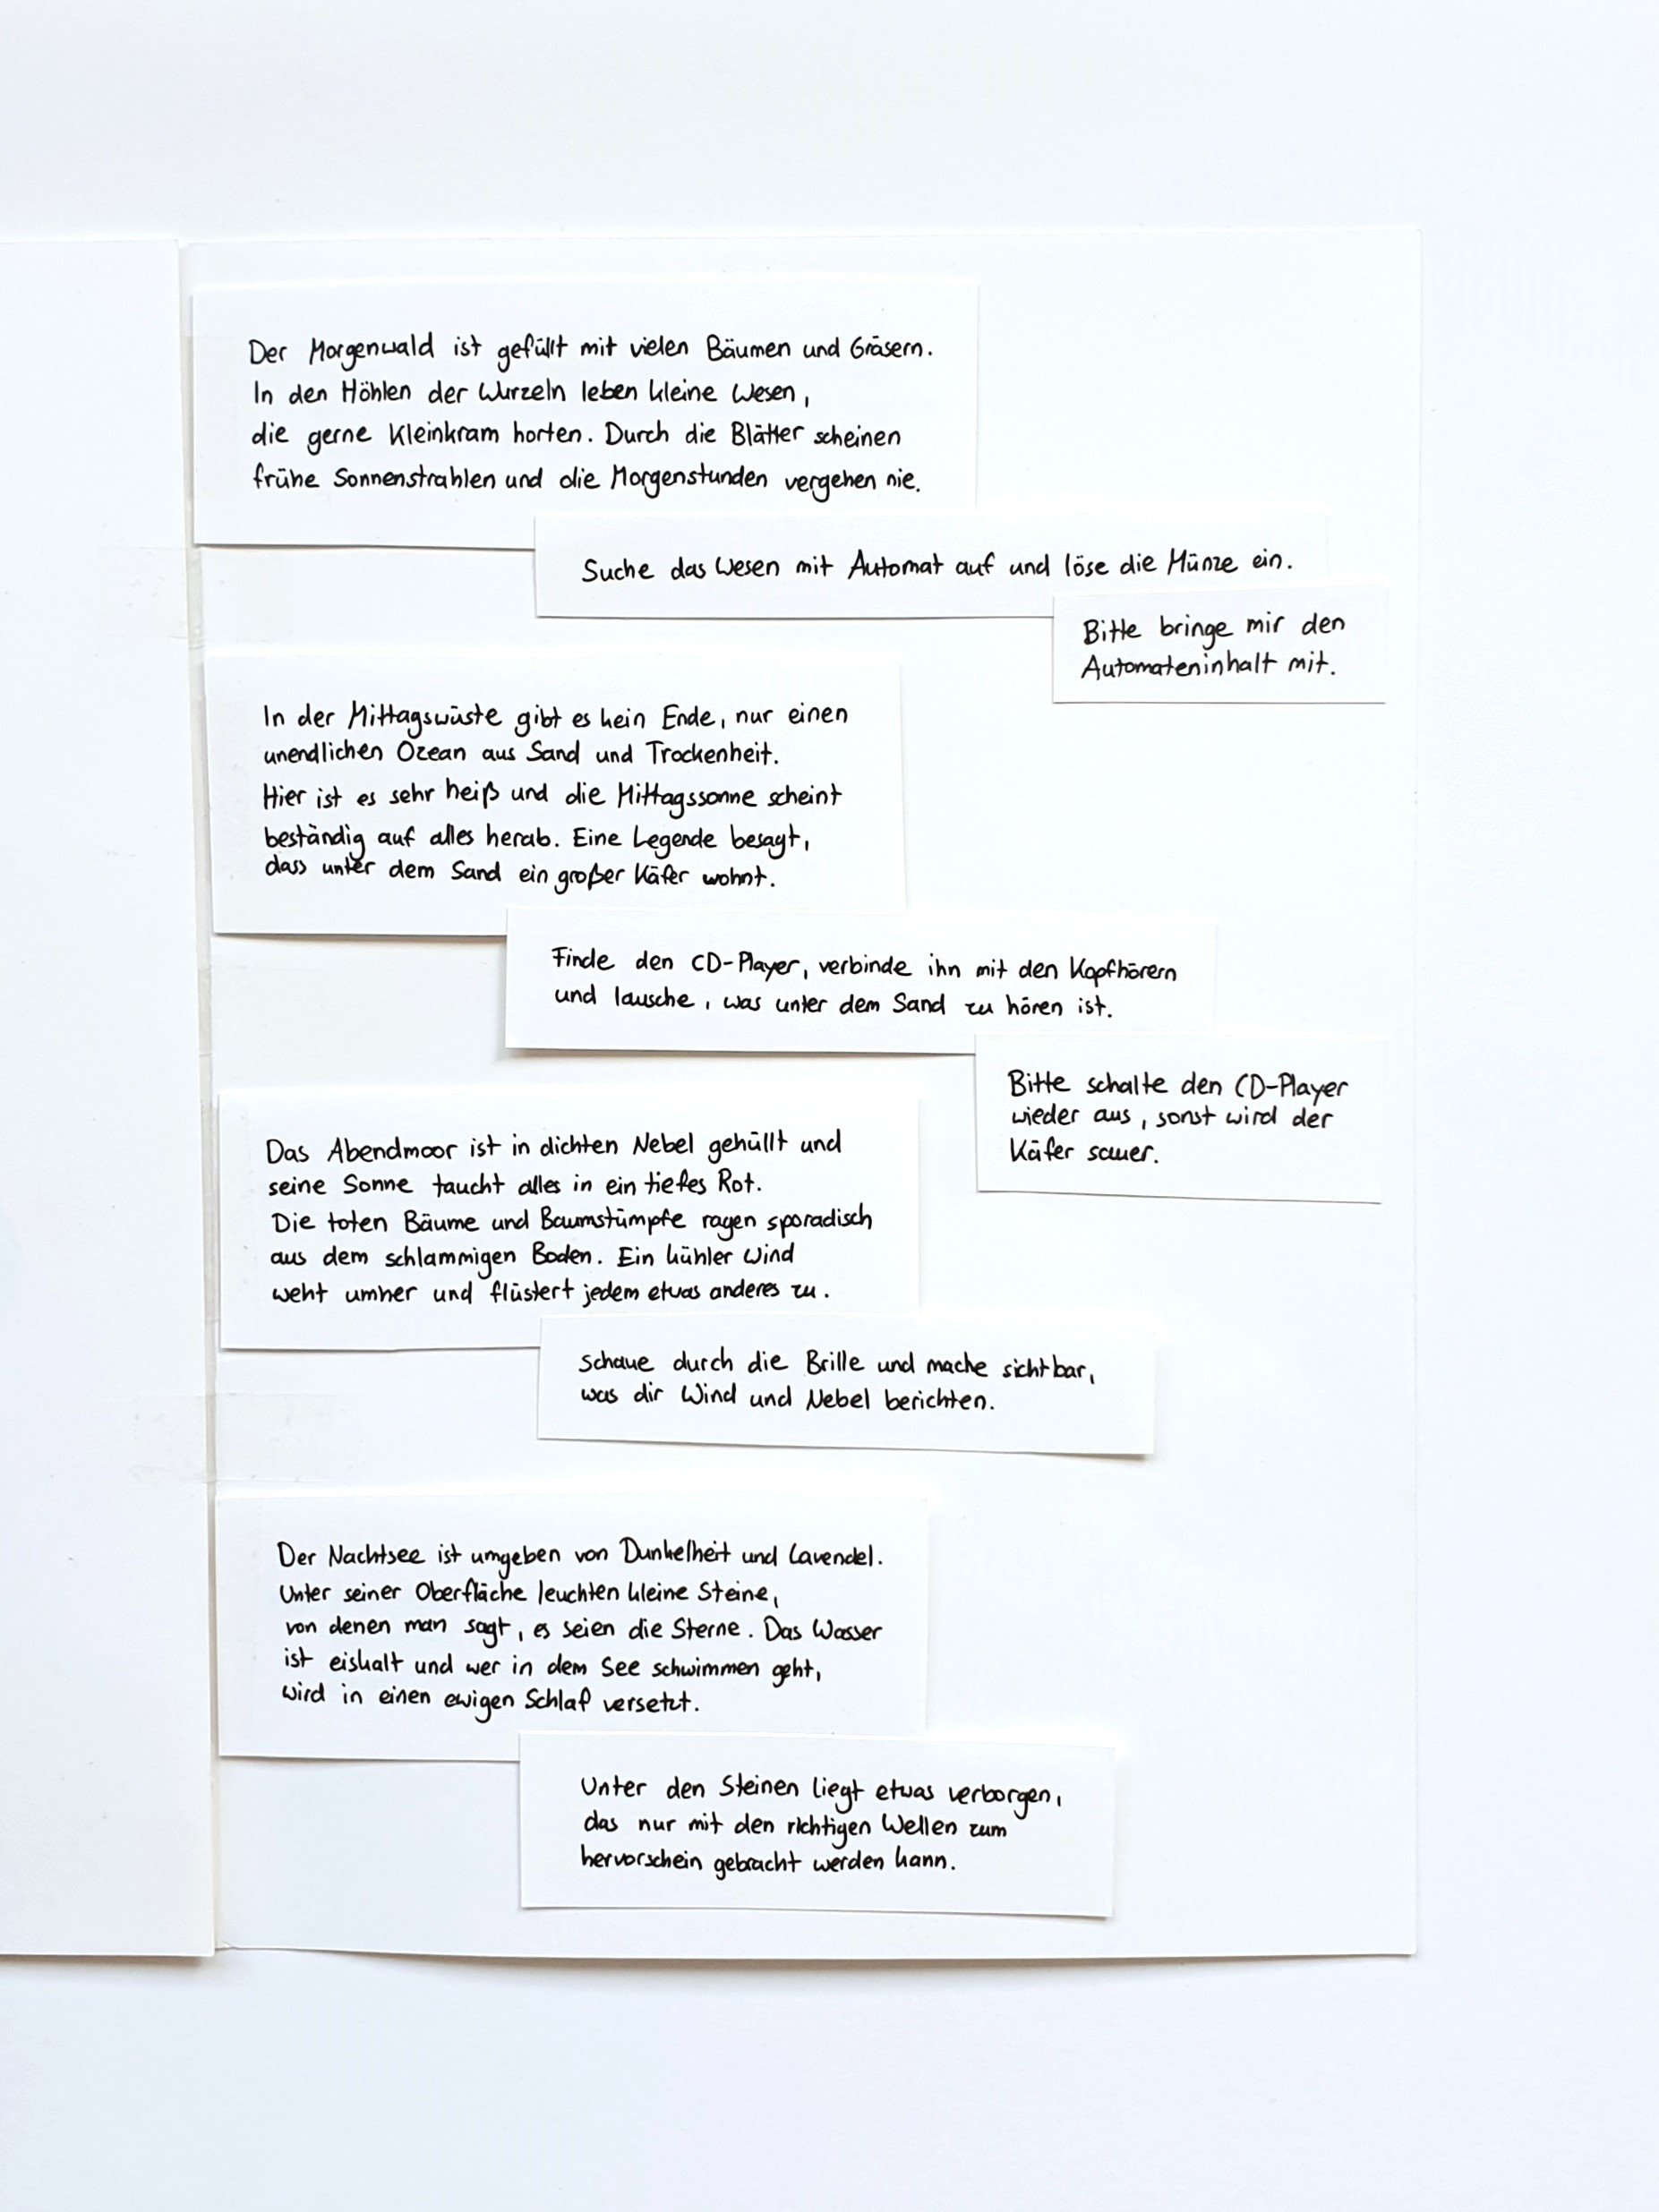 Der Morgenwald ist gefüllt mit vielen Bäumen und Gräsern.
In den Höhlen der Wurzeln leben kleine Wesen,
die gerne Kleinkram horten. Durch die Blätter scheinen
frühe Sonnenstrahlen und die Morgenstunden vergehen nie.
Suche das Wesen mit Automat auf und löse die Münze ein.
Bitte bringe mir den
Automateninhalt mit.
In der Mittagswüste gibt es kein Ende, nur einen
unendlichen Ozean aus Sand und Trockenheit.
Hier ist es sehr heiß und die Mittagssonne scheint
beständig auf alles herab. Eine Legende besagt,
dass unter dem Sand ein großer Käfer wohnt.
Finde den CD-Player, verbinde ihn mit den Kopfhörern
und lausche, was unter dem Sand zu hören ist.
Bitte schalte den CD-Player
wieder aus, sonst wird der
Käfer sauer.
Das Abendmoor ist in dichten Nebel gehüllt und
seine Sonne taucht alles in ein tiefes Rot.
Die toten Bäume und Baumstümpfe ragen sporadisch
aus dem schlammigen Boden. Ein kühler Wind
weht umher und flüstert jedem etwas anderes zu.
Schaue durch die Brille und mache sichtbar,
was dir Wind und Nebel berichten.
Der Nachtsee ist umgeben von Dunkelheit und Lavendel.
Unter seiner Oberfläche leuchten kleine Steine,
von denen man sagt, es seien die Sterne. Das Wasser
ist eiskalt und wer in dem See schwimmen geht,
wird in einen ewigen Schlaf versetzt.
Unter den Steinen liegt etwas verborgen,
das nur mit den richtigen Wellen zum
hervorschein gebracht werden kann.